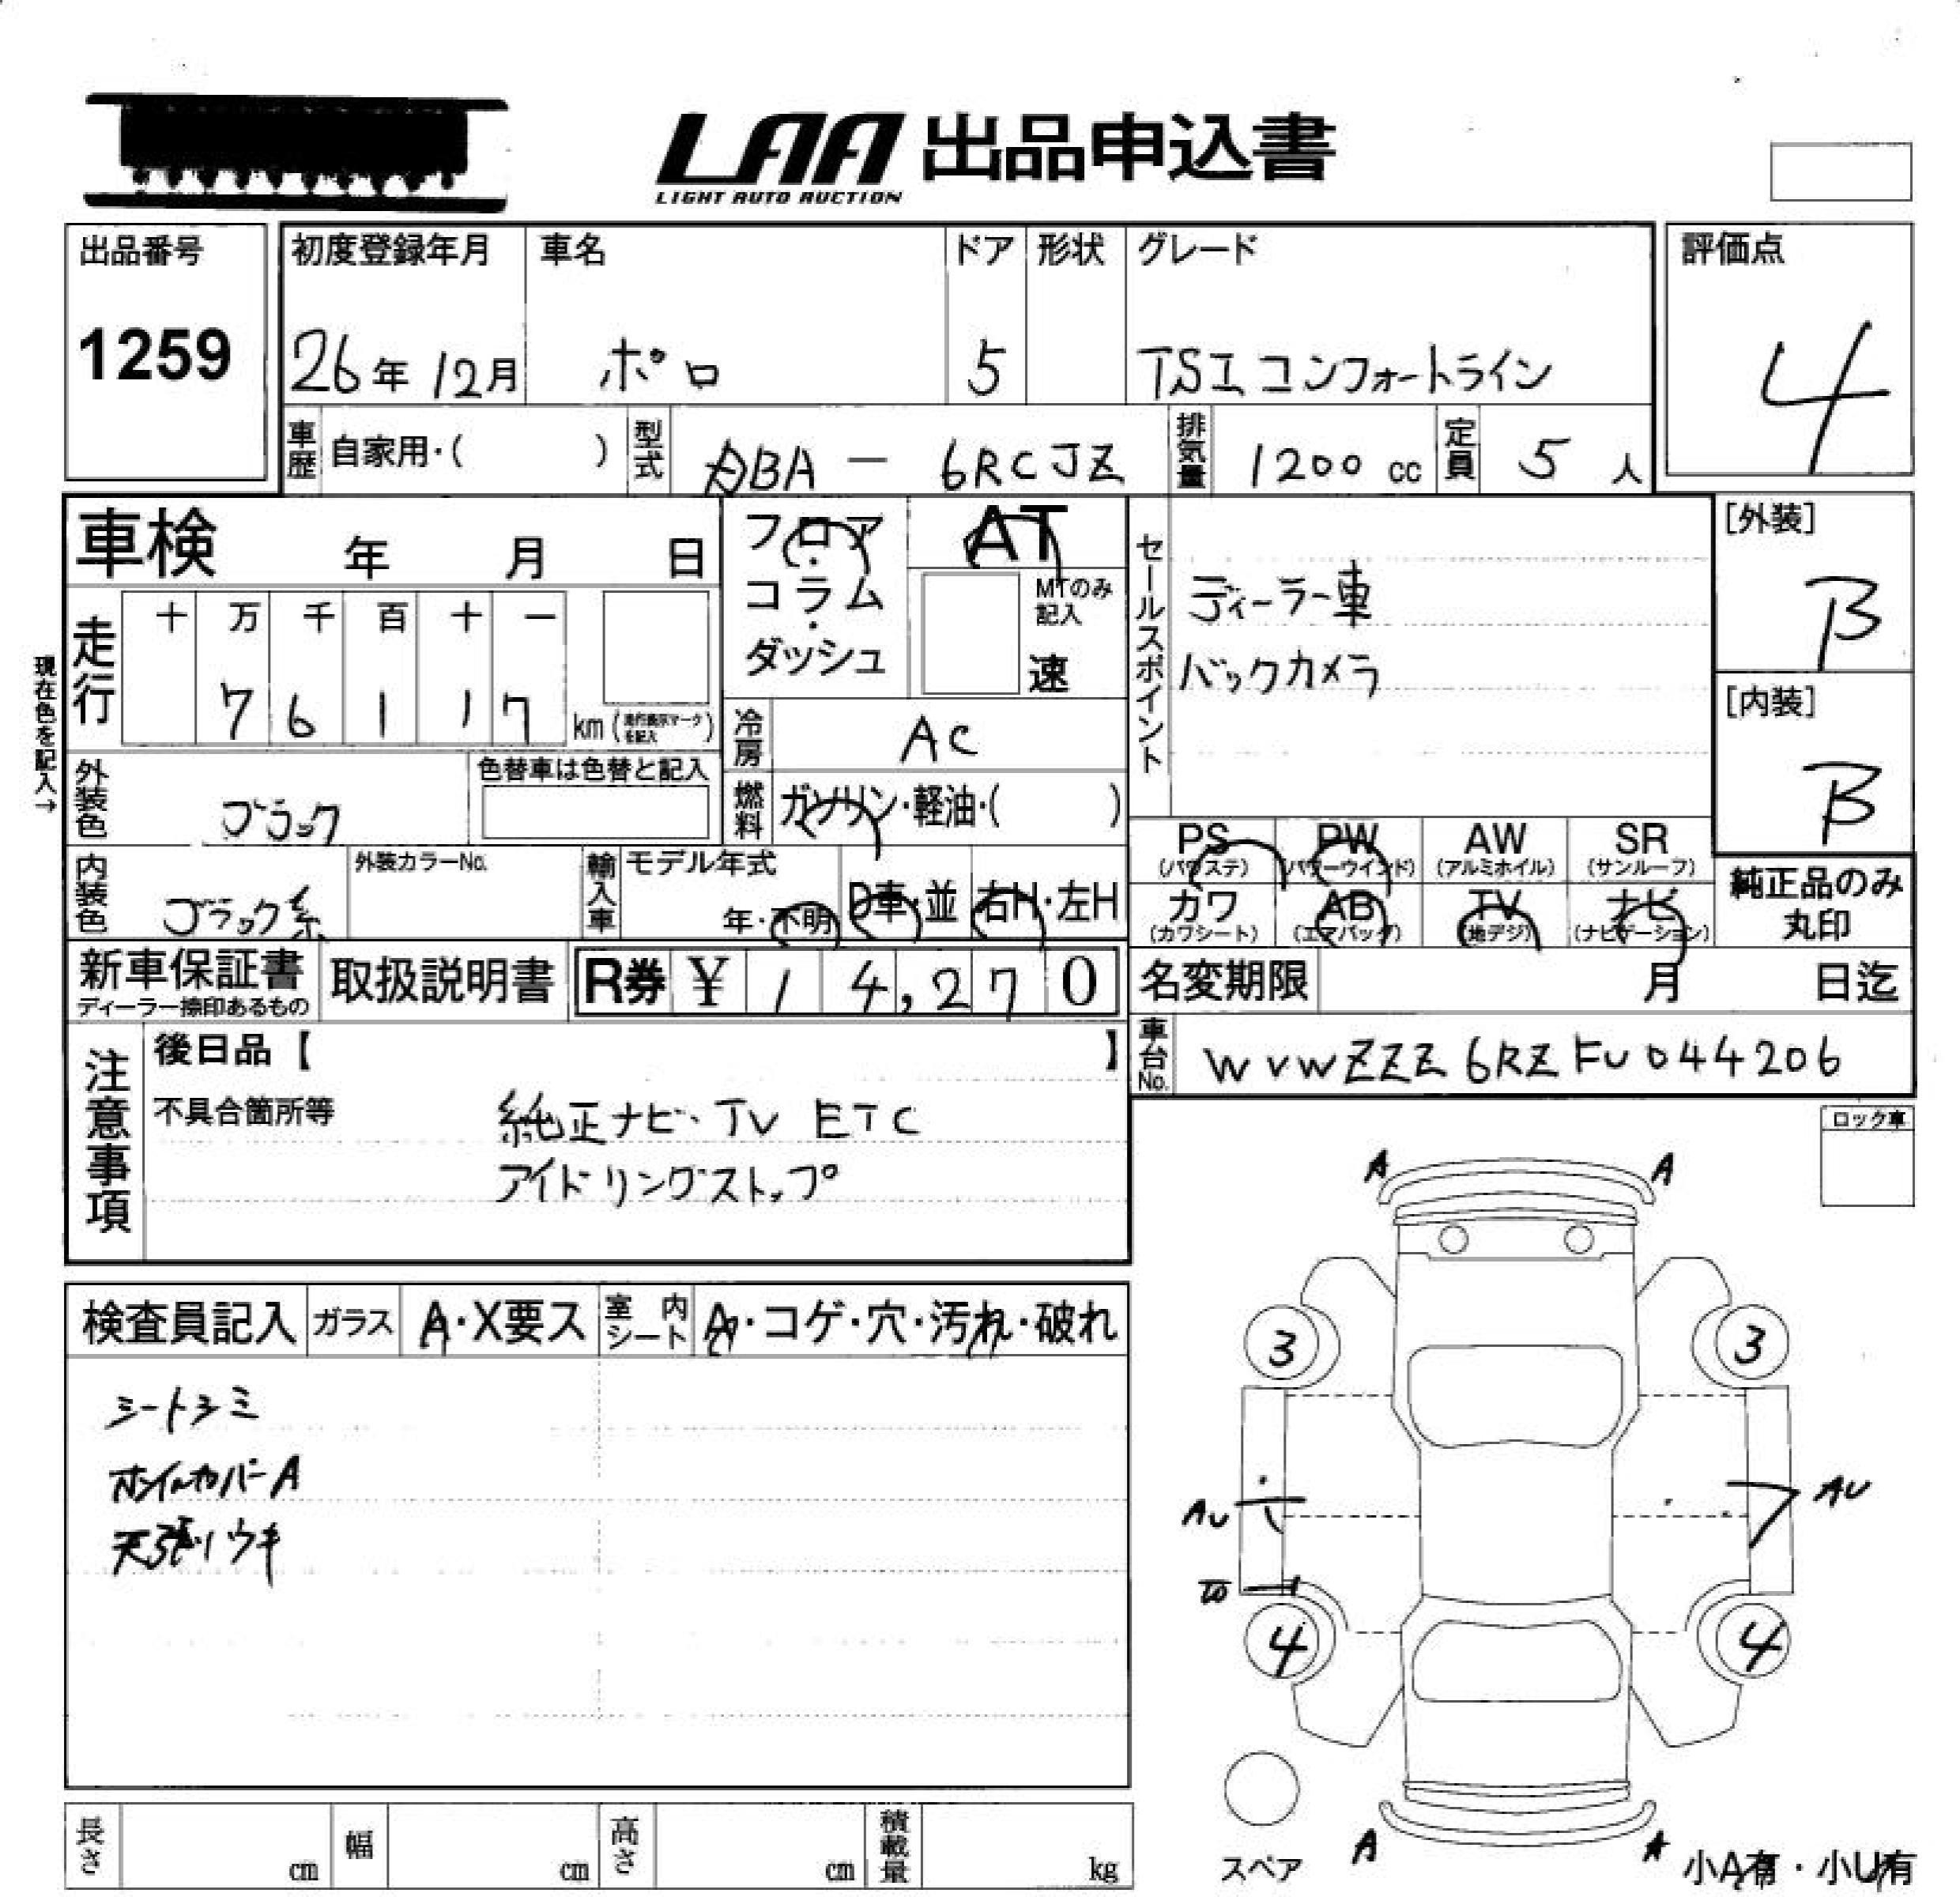 LAA 出品申込書
LIGHT AUTO AUCTION
出品番号
1259
初度登録年月
26年12月
車名
ポロ
ドア
5
形状
グレード
TSI コンフォートライン
評価点
4
車歴 自家用・( )
型式
DBA - 6RCJZ
排気量 1200 cc
定員 5 人
車検 年 月 日
現在色を記入→
走行
十 万 千 百 十 一
7 6 1 1 7 km (走行表示マークを記入)
フロア・コラム・ダッシュ
AT
MTのみ記入
速
冷房 AC
燃料 ガソリン・軽油・( )
セールスポイント
ディーラー車
バックカメラ
[外装]
B
[内装]
B
外装色 ブラック
色替車は色替と記入
内装色 ブラック系
外装カラーNo.
輸入車 モデル年式
年・不明
D車・並
右H・左H
PS (パワステ)
PW (パワーウインド)
AW (アルミホイル)
SR (サンルーフ)
カワ (カワシート)
AB (エアバッグ)
TV (地デジ)
ナビ (ナビゲーション)
純正品のみ
丸印
新車保証書
ディーラー捺印あるもの
取扱説明書
R券 ¥ 14,270
名変期限 月 日迄
車台No. WVWZZZ6RZFU044206
注意事項
後日品【 】
不具合箇所等
純正ナビ、TV ETC
アイドリングストップ
ロック車
検査員記入
ガラス A・X要ス
室内シート A・コゲ・穴・汚れ・破れ
シートシミ
ホイルカバーA
天張りウキ
A A
3 3
AU AU
4 4
A A
スペア
小A有・小U有
長さ cm
幅 cm
高さ cm
積載量 kg